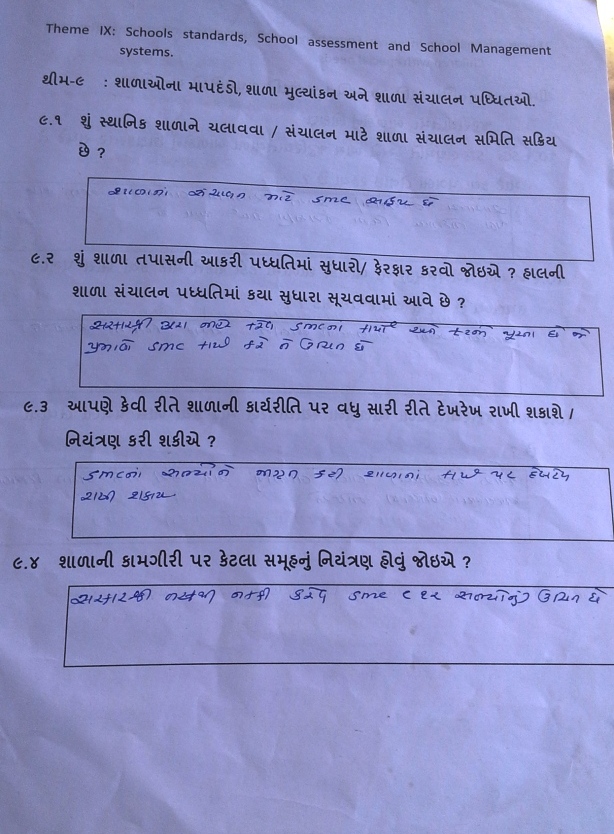 Theme IX: Schools standards, School assessment and School Management
systems.
થીમ-૯ : શાળાઓના માપદંડો, શાળા મુલ્યાંકન અને શાળા સંચાલન પધ્ધિતઓ.
૯.૧ શું સ્થાનિક શાળાને ચલાવવા / સંચાલન માટે શાળા સંચાલન સમિતિ સક્રિય
છે ?
શાળાનાં સંચાલન માટે SMC સક્રિય છે
૯.૨ શું શાળા તપાસની આકરી પધ્ધતિમાં સુધારો/ ફેરફાર કરવો જોઇએ ? હાલની
શાળા સંચાલન પધ્ધતિમાં કયા સુધારા સૂચવવામાં આવે છે ?
સરકારશ્રી દ્વારા જાહેર કરેલ SMCના કાર્યો અને ફરજો છે જે
મુજબ SMC કાર્ય કરે તે ઉચિત છે
૯.3 આપણે કેવી રીતે શાળાની કાર્યરીતિ પર વધુ સારી રીતે દેખરેખ રાખી શકાશે /
નિયંત્રણ કરી શકીએ ?
SMCનાં સભ્યોને જાગૃત કરી શાળાનાં કાર્ય પર દેખરેખ
રાખી શકાય
૯.૪ શાળાની કામગીરી પર કેટલા સમૂહનું નિયંત્રણ હોવું જોઇએ ?
સરકારશ્રી તરફથી નક્કી કરેલ SMC ૮ ૧૨ સભ્યોનું ઉચિત છે